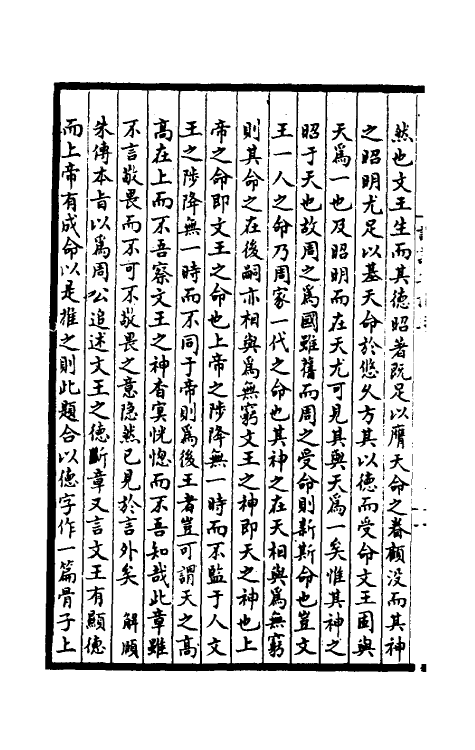 然也文王生而其德昭著既足以膺天命之眷顧没而其神
之昭明尤足以基天命於悠久方其以德而受命文王固與
天爲一也及昭明而在天尤可見其與天爲一矣惟其神之
昭于天也故周之爲國雖舊而周之受命則新斯命也豈文
王一人之命乃周家一代之命也其神之在天相與爲無窮
則其命之在後嗣亦相與爲無窮文王之神即天之神也上
帝之命即文王之命也上帝之陟降無一時而不監于人文
王之陟降無一時而不同于帝則爲後王者豈可謂天之高
高在上而不吾察文王之神杳冥恍惚而不吾知哉此章雖
不言敬畏而不可不敬畏之意隠然已見於言外矣 解頤
朱傳本旨以爲周公追述文王之德斷章又言文王有顯德
而上帝有成命以是推之則此題合以德字作一篇骨子上